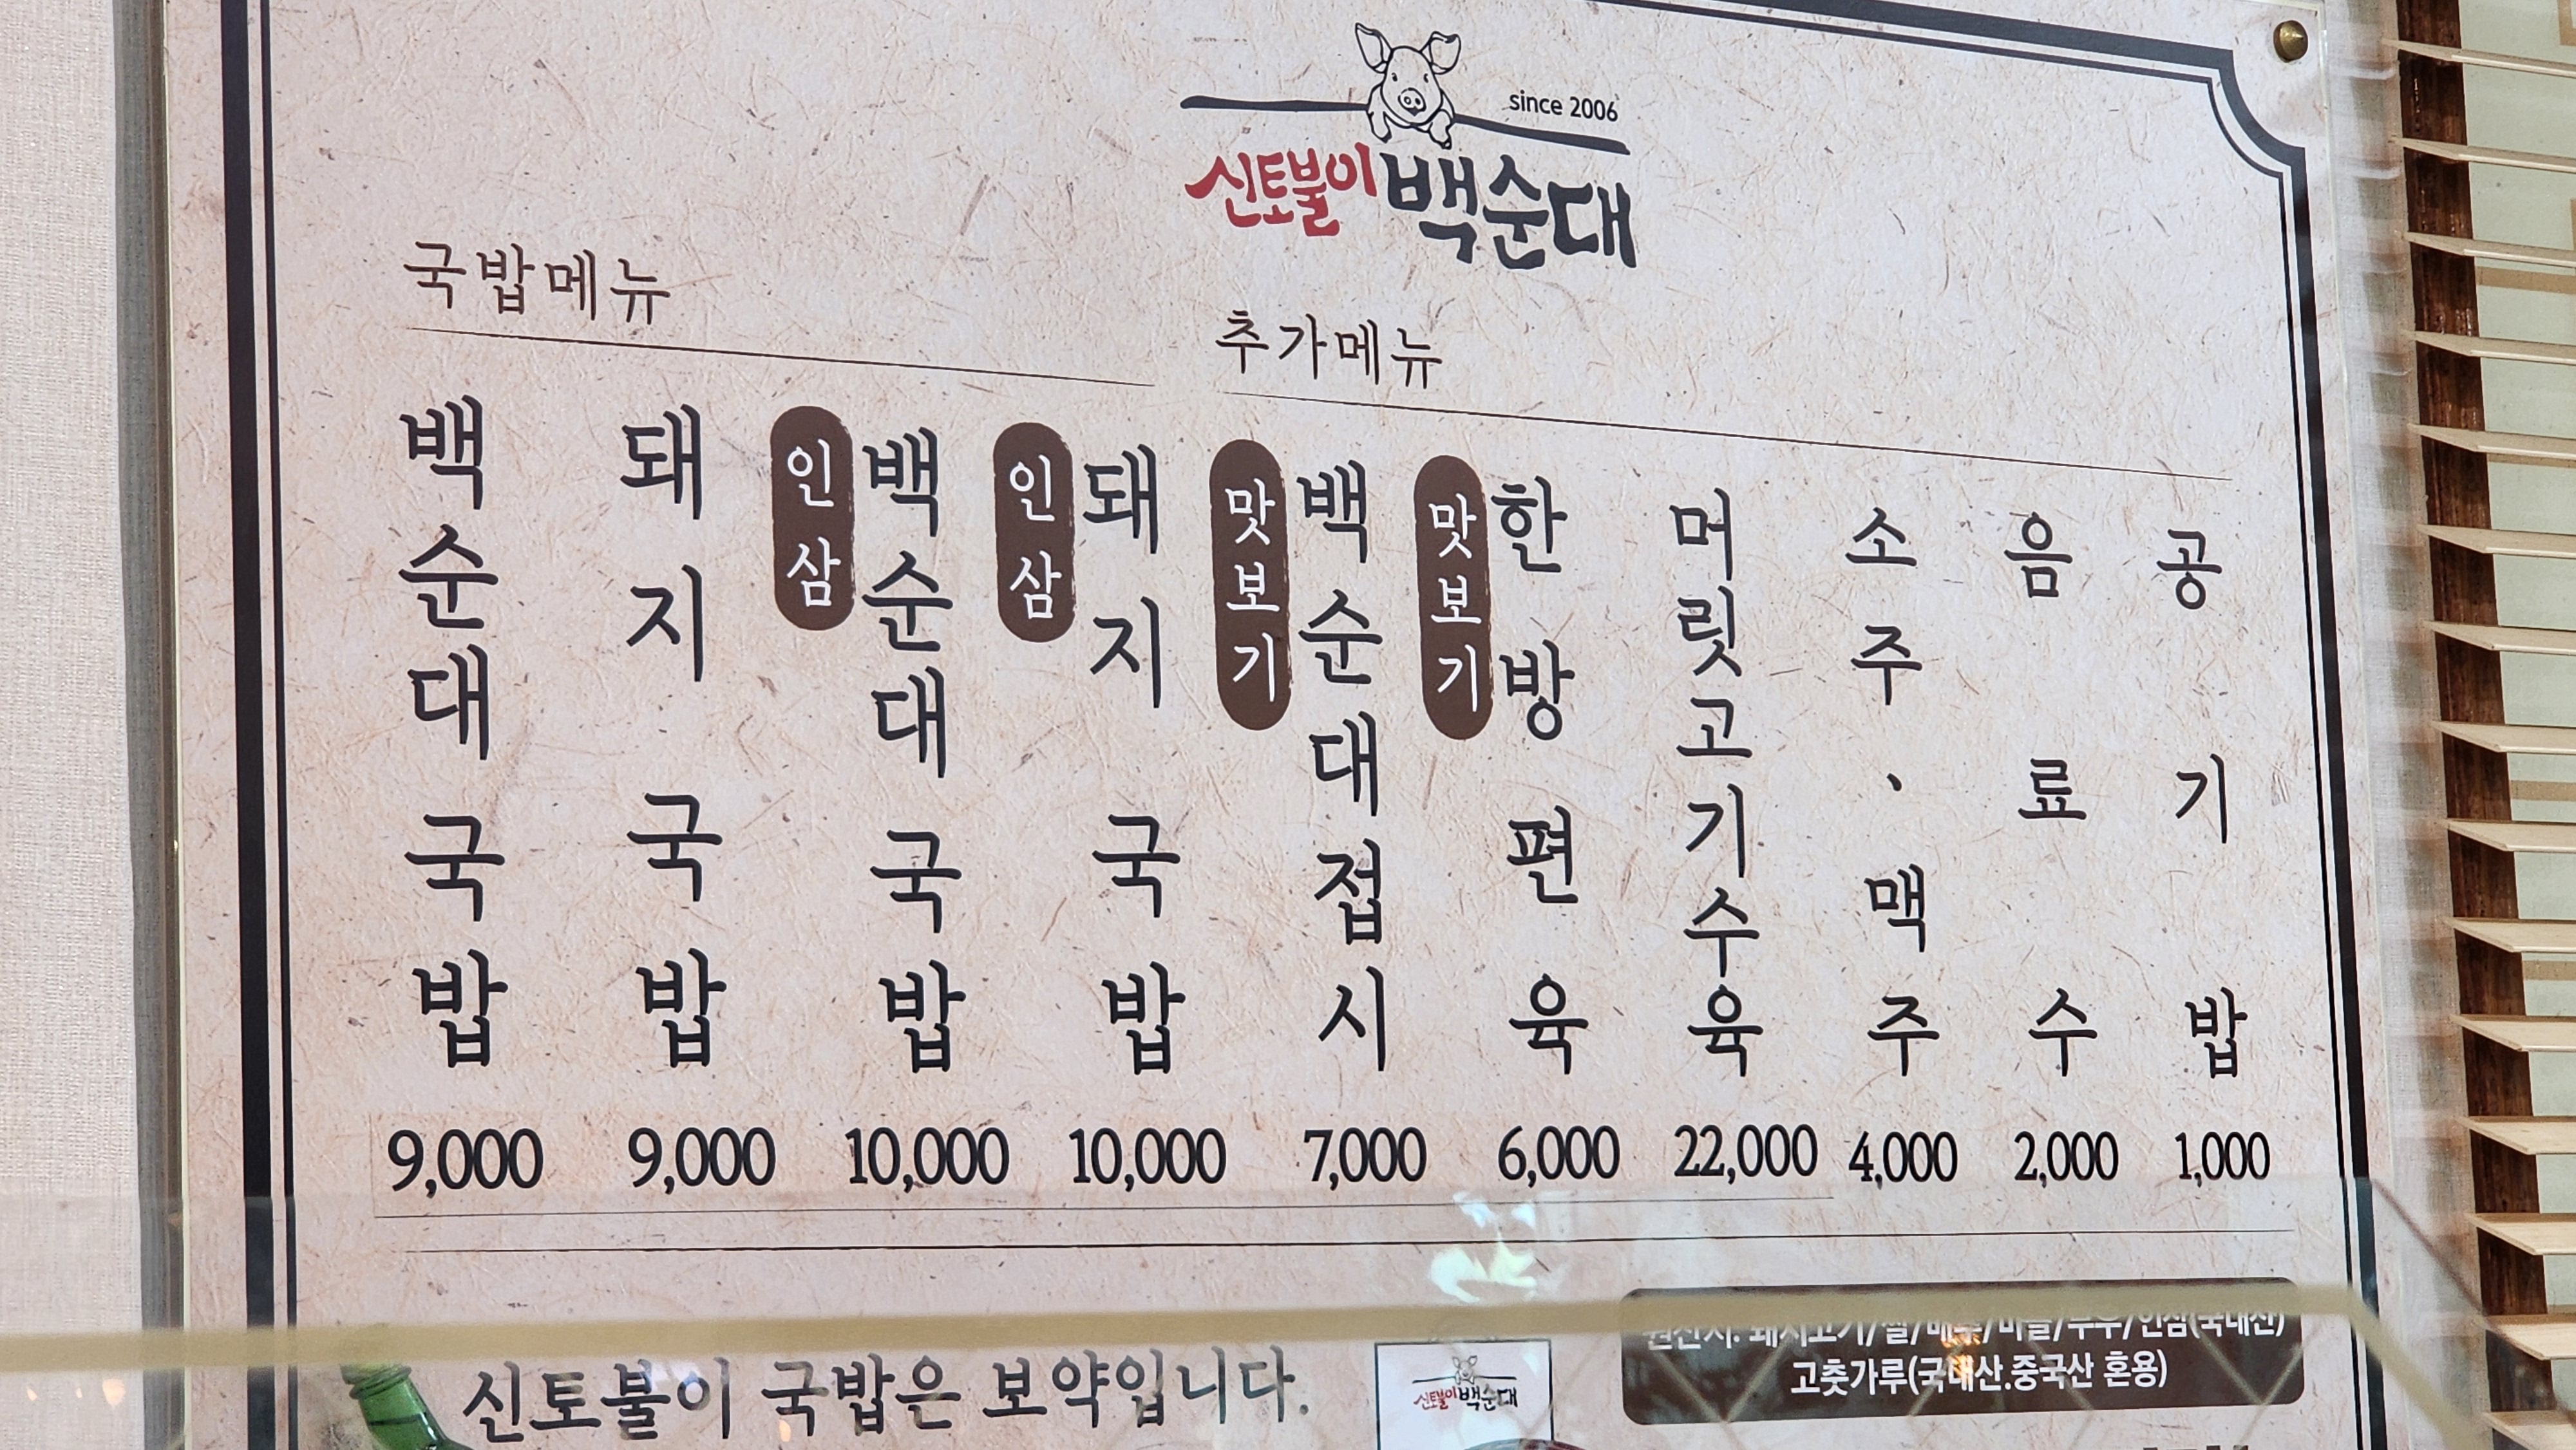 since 2006
신토불이 백순대
국밥메뉴
백순대국밥 9,000
돼지국밥 9,000
인삼 백순대국밥 10,000
인삼 돼지국밥 10,000
추가메뉴
맛보기 백순대접시 7,000
맛보기 한방편육 6,000
머릿고기수육 22,000
소주·맥주 4,000
음료수 2,000
공기밥 1,000
신토불이 국밥은 보약입니다.
신토불이 백순대
원산지: 돼지고기/쌀/배추/마늘/두부/인삼(국내산)
고춧가루(국내산.중국산 혼용)